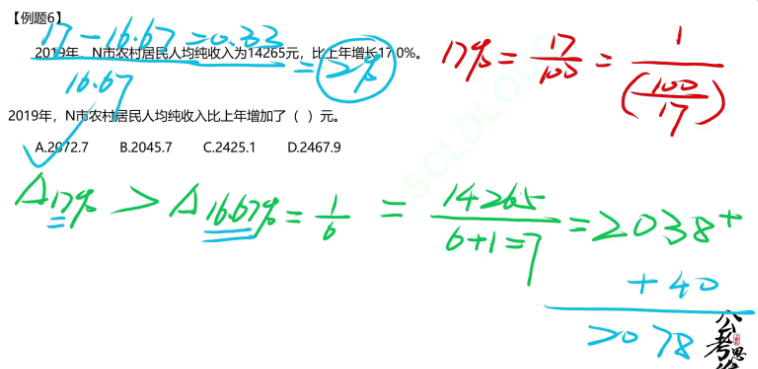 【例题6】
17-16.67=0.33
2019年，N市农村居民人均纯收入为14265元，比上年增长17.0%。
16.67
=2%
17%=17/100=1/(100/17)
2019年，N市农村居民人均纯收入比上年增加了（ ）元。
A.2072.7 B.2045.7 C.2425.1 D.2467.9
△17%>△16.67%=1/6=14265/6+1=7=2038+
+40
2078
公考思
SCLDLOU